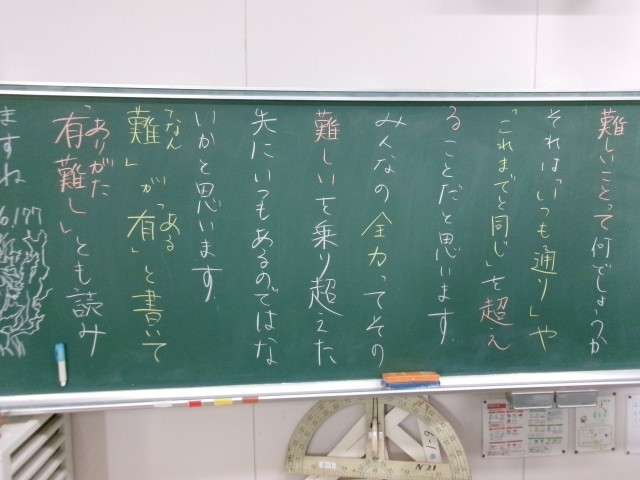 難しいことって何でしょうか
それは「いつも通り」や
「これまでと同じ」を超え
ることだと思います。
みんなの全力ってその
難しいを乗り超えた
先にいつもあるのではな
いかと思います。
「難」が「有」と書いて
なん
ある
「有難しいとも読み
ありがた
ますね
6/77
6-1
N21